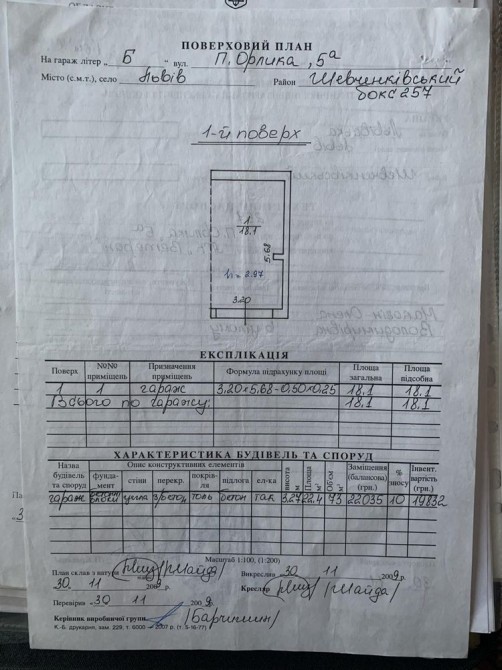 ПОВЕРХОВИЙ ПЛАН
На гараж літер „ Б " вул. П. Орлика, 5а
Місто (с.м.т.), село Львів Район Шевченківський
бокс 257
1-й поверх
1
18,1
5.68
h = 2.97
3.20
ЕКСПЛІКАЦІЯ
Поверх №№ приміщень Призначення приміщень Формула підрахунку площі Площа загальна Площа підсобна
1 1 гараж 3,20×5,68-0,50×0,25 18,1 18,1
Всього по гаражу: 18,1 18,1
ХАРАКТЕРИСТИКА БУДІВЕЛЬ ТА СПОРУД
Назва будівель та споруд Опис конструктивних елементів висота м Площа м² Об'єм м³ Заміщення (балансова) (грн.) % зносу Інвент. вартість (грн.)
фундамент стіни перекр. покрівля підлога ел-ка
гараж цегла з/бетон толь бетон так 3,27 22,4 73 22035 10 19832
Масштаб 1:100, (1:200)
План склав з натури /Шайда/ Викреслив 30 11 2009 р.
30. 11 2009 р. Креслив /Шайда/
Перевірив 30 11 2009 р.
Керівник виробничої групи
К.-Б. друкарня, зам. 229. т. 6000 2007 р. (т. 3-16-77)